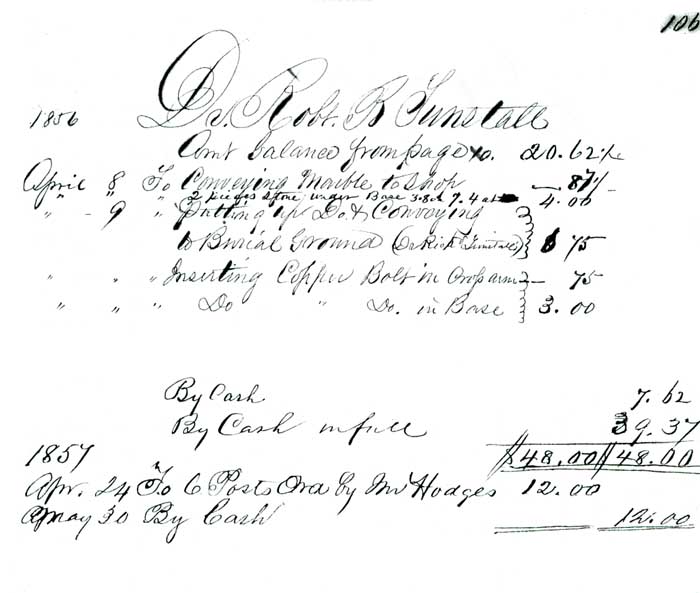 106
1856 Dr. Robt. B Tunstall
Amt balance from page 20.62½
April 8 To Conveying Marble to Shop — 87½
" " 2 pieces stone under Base 4.00
" - 9 " Putting up Do. & Conveying
to Burial Ground (Dr Rich. Tunstall) 75
" " " Inserting Copper Bolt in Croparm — 75
" " " Do " Do. in Base 3.00
By Cash 7.62
By Cash in full 39.37
1857 $48.00 $48.00
Apr. 24 To 6 Posts Ord by Mr Hodges 12.00
May 30 By Cash 12.00